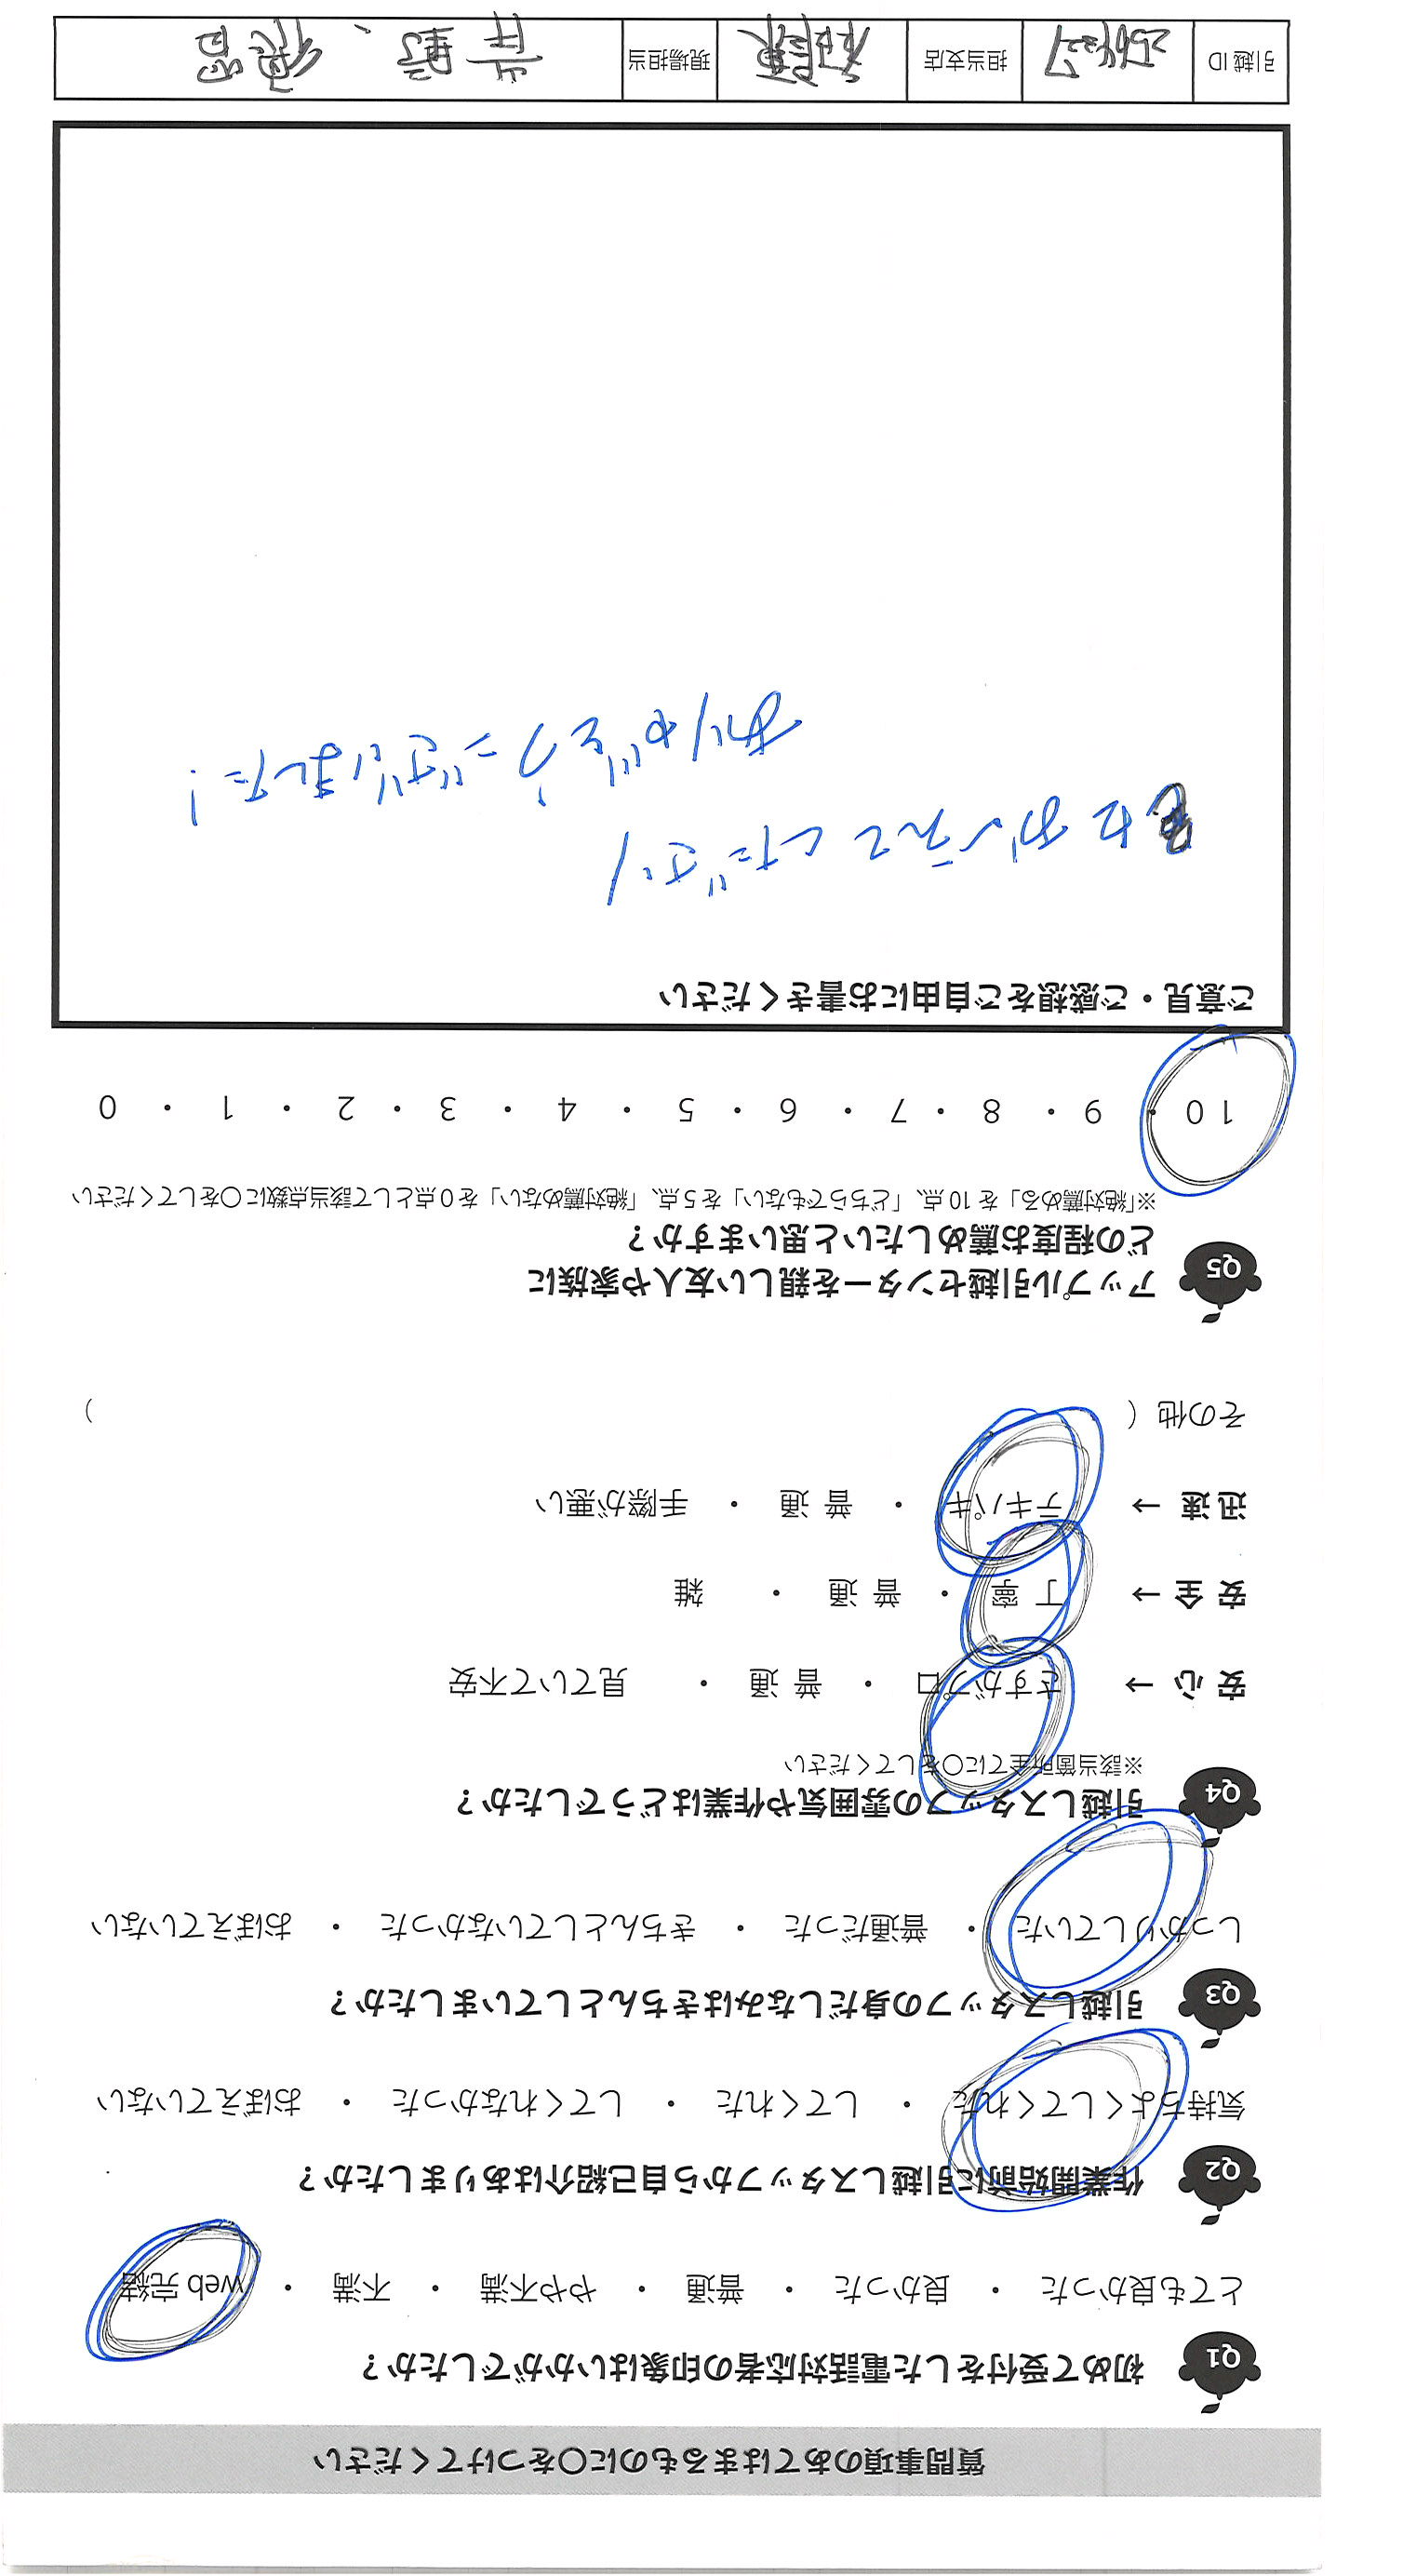 質問事項のあてはまるものに〇をつけてください
Q1 初めて受付をした電話対応者の印象はいかがでしたか？
とても良かった ・ 良かった ・ 普通 ・ やや不満 ・ 不満 ・ web 完結
Q2 作業開始前に引越しスタッフから自己紹介はありましたか？
気持ちよくしてくれた ・ してくれた ・ してくれなかった ・ おぼえていない
Q3 引越しスタッフの身だしなみはきちんとしていましたか？
しっかりしていた ・ 普通だった ・ きちんとしていなかった ・ おぼえていない
Q4 引越しスタッフの雰囲気や作業はどうでしたか？
※該当箇所全てに〇をしてください
安 心 → さすがプロ ・ 普 通 ・ 見ていて不安
安 全 → 丁 寧 ・ 普 通 ・ 雑
迅 速 → テキパキ ・ 普 通 ・ 手際が悪い
その他（ ）
Q5 アップル引越センターを親しい友人や家族に
どの程度お薦めしたいと思いますか？
※「絶対薦める」を 10 点、「どちらでもない」を 5 点、「絶対薦めない」を 0 点として該当点数に〇をしてください
10 ・ 9 ・ 8 ・ 7 ・ 6 ・ 5 ・ 4 ・ 3 ・ 2 ・ 1 ・ 0
ご意見・ご感想をご自由にお書きください
ていただき
ありがとうございました！
引越 ID 担当支店 現場担当